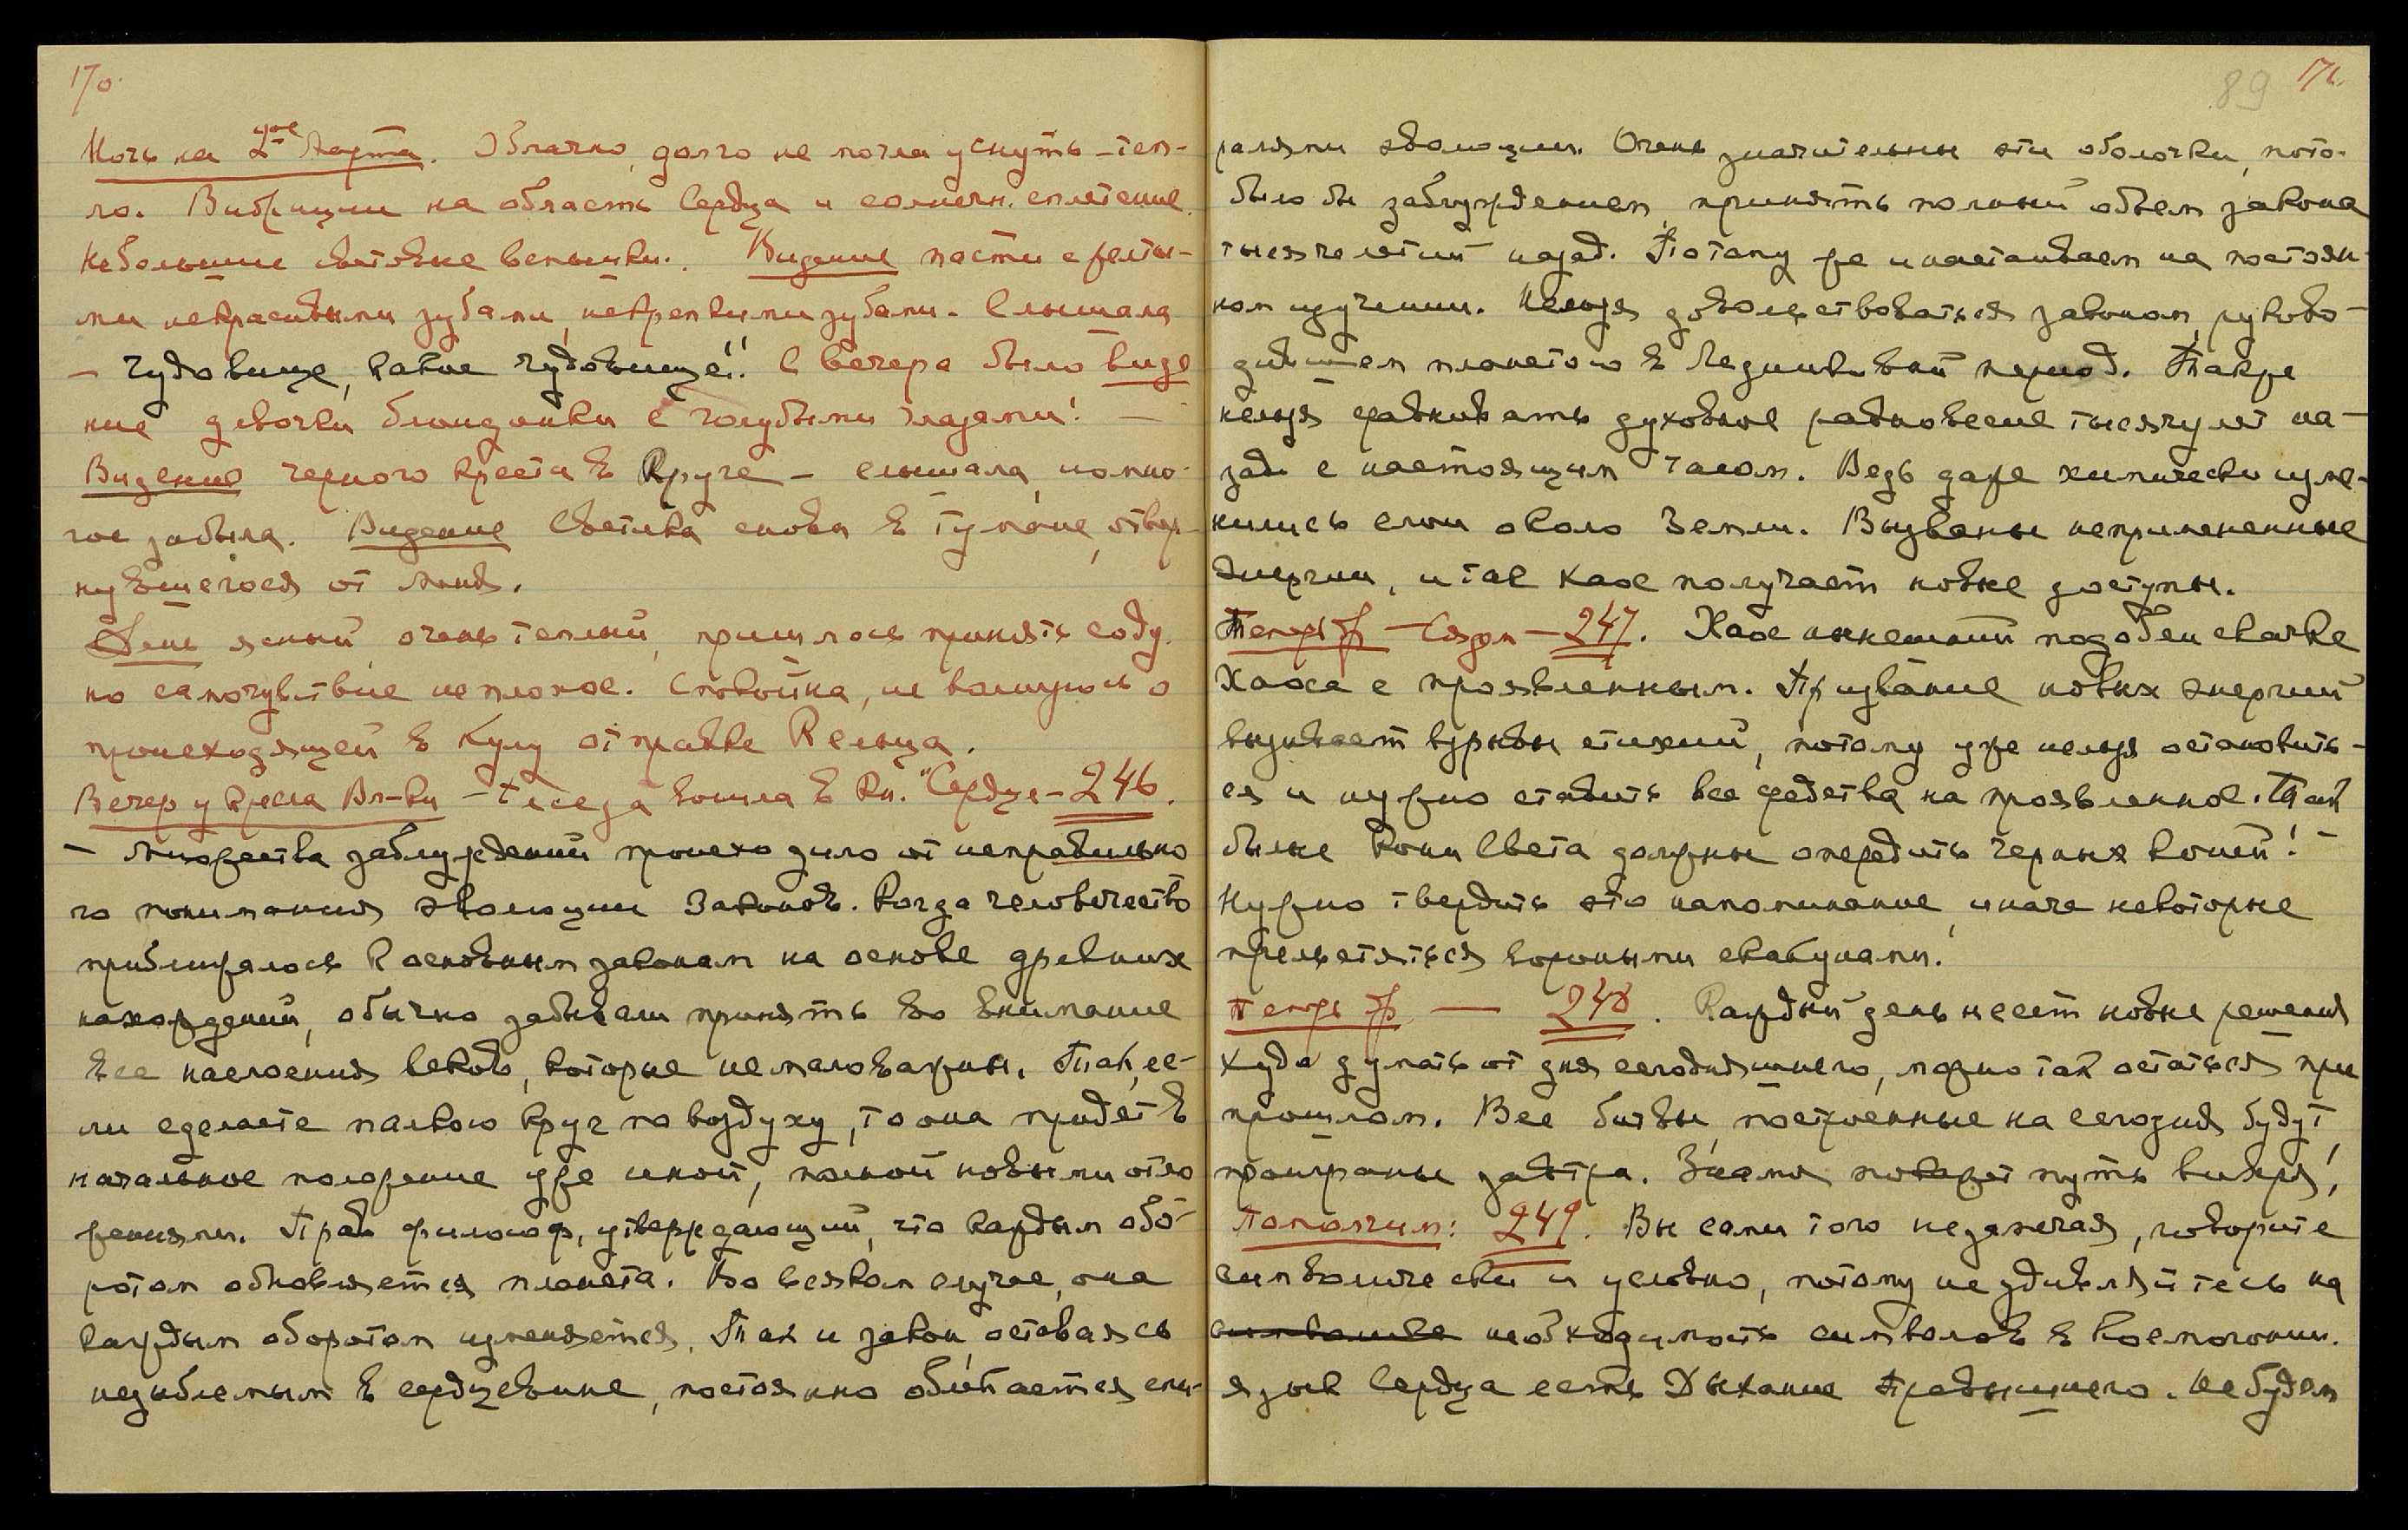 170.
Ночь на 2ое Марта. Облачно, долго не могла уснуть – теп-
ло. Вибрации на область Сердца и солнечн. сплетение.
Небольшие световые вспышки. Видение пасти с желты-
ми некрасивыми зубами, некрепкими зубами. Слышала
– чудовище, какое чудовище!! С вечера было виде
ние девочки блондинки с голубыми глазами! —
Видение черного креста в Круге – слышала, но мно-
гое забыла. Видение Светика снова в тумане, отвер-
нувшегося от меня.
День ясный, очень теплый, пришлось принять соду,
но самочувствие неплохое. Спокойна, не волнуюсь о
происходящей в Кулу отправке Кельца.
Вечер у кресла Вл-ки – Беседа вошла в Кн. "Сердце – 246.
– Множества заблуждений происходило от неправильно
го понимания эволюции Законов. Когда человечество
приближалось к основным законам на основе древних
нахождений, обычно забывали принять во внимание
все наслоения веков, которые немаловажны. Так, ес-
ли сделаете палкою круг по воздуху, то она придет в
начальное положение уже иной, полной новыми отло
жениями. Прав философ, утверждающий, что каждым обо-
ротом обновляется планета. Во всяком случае, она
каждым оборотом изменяется. Так и закон, оставаясь
незыблемым в сердцевине, постоянно обвивается спи-
89 171.
ралями эволюции. Очень значительны эти оболочки, пото-
было бы заблуждением принять полный объем закона
тысячелетий назад. Потому же и настаиваем на постоян-
ном изучении. Нельзя довольствоваться законом, руково-
дившем планетою в Ледниковый период. Также
нельзя сравнивать духовное равновесие тысячу лет на-
зад с настоящим часом. Ведь даже химически изме-
нились слои около Земли. Вызваны неприменённые
энергии, и так Хаос получает новые доступы.
Теперь ж – Сядем – 247. Хаос нынешний подобен скачке
Хаоса с проявленным. Призвание новых энергий
вызывает взрывы стихий, потому уже нельзя остановить-
ся и нужно ставить все средства на проявленное. Так
белые Кони Света должны опередить черных коней!
Нужно твердить это напоминание, иначе некоторые
прельстятся вороными скакунами.
Теперь ж — 248. Каждый день несет новые решения
Худо думать от дня сегодняшнего, можно так остаться при
прошлом. Все битвы, построенные на сегодня, будут
проиграны завтра. Знамя покажет путь вихря!
Помолчим: 249. Вы сами того не замечая, говорите
символически и условно, потому не удивляйтесь на
необходимость символов в Космогонии.
язык Сердца есть Дыхание Превышнего. Не будем